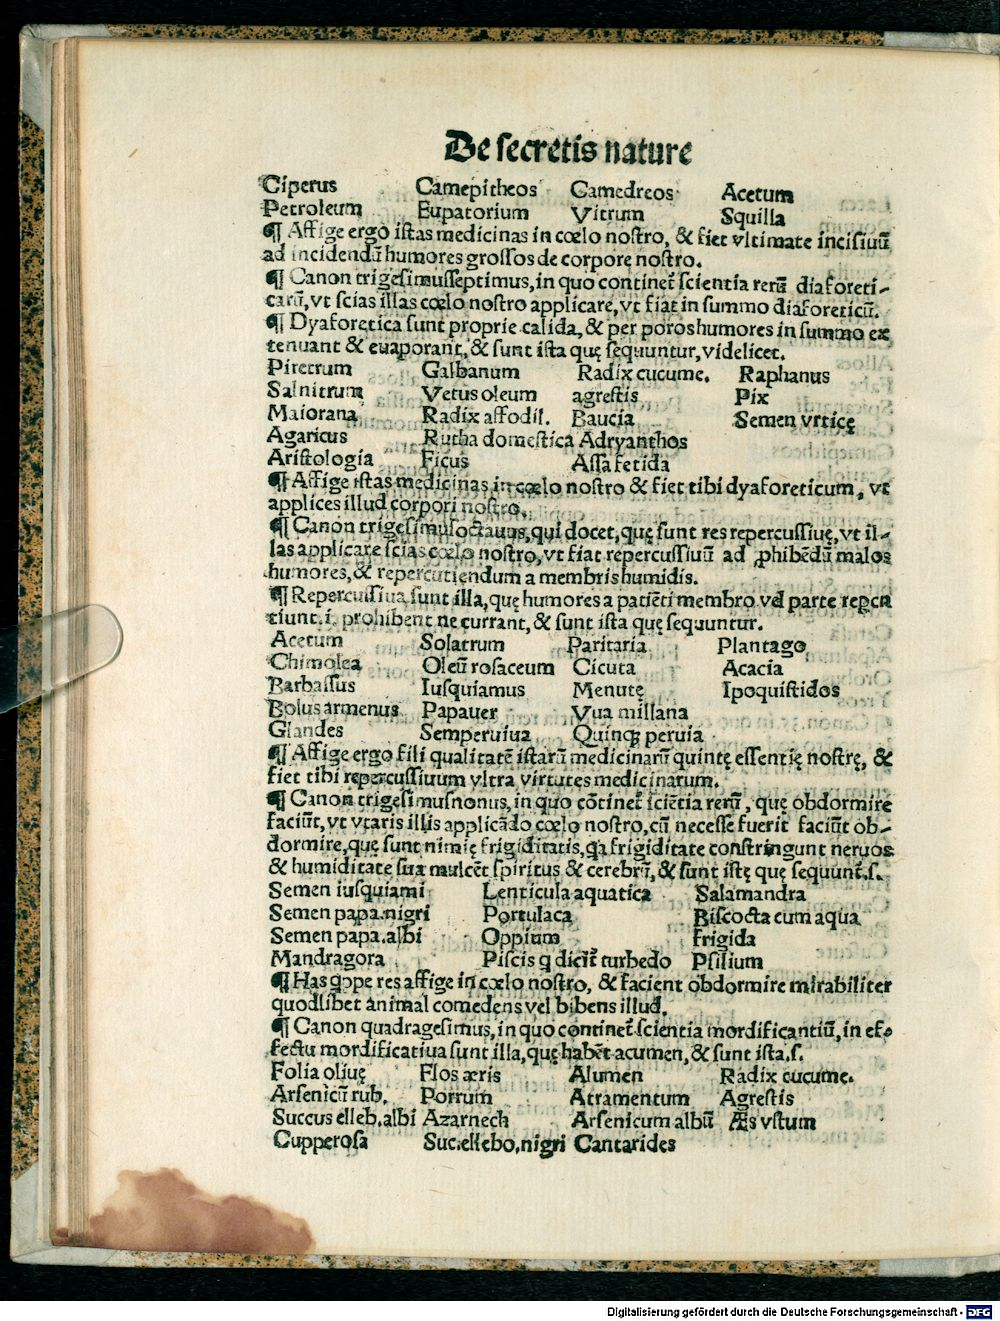 De secretis nature
Ciperus Camepitheos Camedreos Acetum
Petroleum Eupatorium Vitrum Squilla
¶ Affige ergo istas medicinas in cœlo nostro, & fiet vltimate incisiuū
ad incidendū humores grossos de corpore nostro.
¶ Canon trigesimusseptimus, in quo continet̄ scientia rerū diaforeti-
carū, vt scias illas cœlo nostro applicare, vt fiat in summo diaforeticū.
¶ Dyaforetica sunt proprie calida, & per poros humores in summo ex
tenuant & euaporant, & sunt ista quę sequuntur, videlicet.
Piretrum Galbanum Radix cucume. Raphanus
Salnitrum Vetus oleum agrestis Pix
Maiorana Radix affodil. Baucia Semen vrticę
Agaricus Rutha domestica Adryanthos
Aristologia Ficus Assa fetida
¶ Affige istas medicinas in cœlo nostro & fiet tibi dyaforeticum, vt
applices illud corpori nostro.
¶ Canon trigesimusoctauus, qui docet, quę sunt res repercussiuę, vt il-
las applicare scias cœlo nostro, vt fiat repercussiuū ad ꝓhibēdū malos
humores, & repercutiendum a membris humidis.
¶ Repercussiua sunt illa, quę humores a patiēti membro vel parte repercu
tiunt .i. prohibent ne currant, & sunt ista quę sequuntur.
Acetum Solatrum Paritaria Plantago
Chimolea Oleū rosaceum Cicuta Acacia
Barbassus Iusquiamus Menutę Ipoquistidos
Bolus armenus Papauer Vua millana
Glandes Semperuiua Quinqȝ peruia
¶ Affige ergo fili qualitatē istarū medicinarū quintę essentię nostrę, &
fiet tibi repercussiuum vltra virtutes medicinarum.
¶ Canon trigesimusnonus, in quo cōtinet̄ sciētia rerū, quę obdormire
faciūt, vt vtaris illis applicādo cœlo nostro, cū necesse fuerit faciūt ob-
dormire, quę sunt nimię frigiditatis, qa frigiditate constringunt neruos
& humiditate sua mulcēt spiritus & cerebrū, & sunt istę quę sequunt̄.s.
Semen iusquiami Lenticula aquatica Salamandra
Semen papa.nigri Portulaca Biscocta cum aqua
Semen papa.albi Oppium frigida
Mandragora Piscis q dicit̄ turbedo Psilium
¶ Has qppe res affige in cœlo nostro, & facient obdormire mirabiliter
quodlibet animal comedens vel bibens illud.
¶ Canon quadragesimus, in quo continet̄ scientia mordificantiū, in ef-
fectu mordificatiua sunt illa, quę habēt acumen, & sunt ista.s.
Folia oliuę Flos æris Alumen Radix cucume.
Arsenicū rub. Porrum Atramentum Agrestis
Succus elleb.albi Azarnech Arsenicum albū Æs vstum
Cupperosa Suc.ellebo.nigri Cantarides
Digitalisierung gefördert durch die Deutsche Forschungsgemeinschaft - DFG